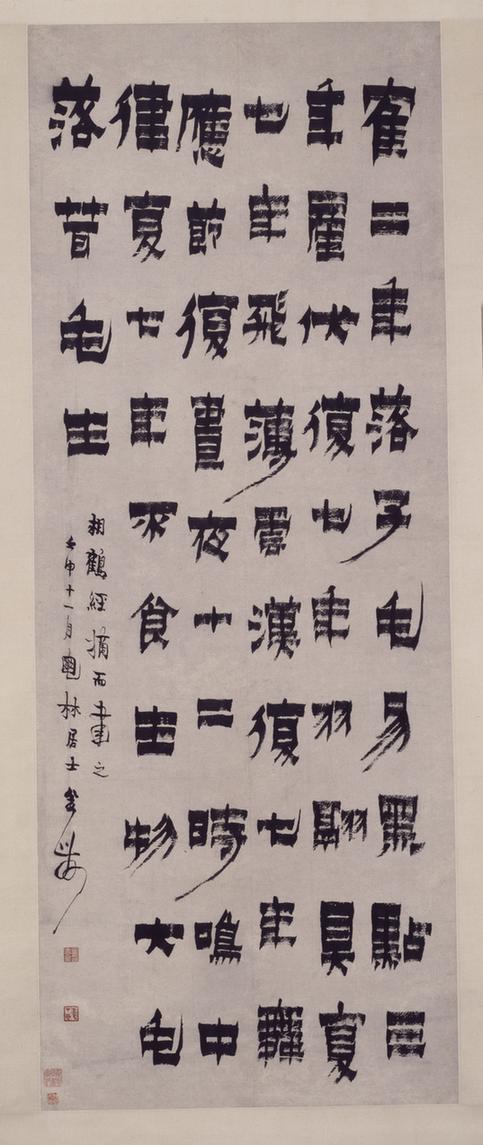 隺二年落子毛易黑點三
年產伏復七年羽翮具夏
七年飛薄雲漢復七年舞
應節復晝夜十二時鳴中
律夏七年不食生物大毛
落茸毛生
相鶴經摘而書之
壬申十一月林居士